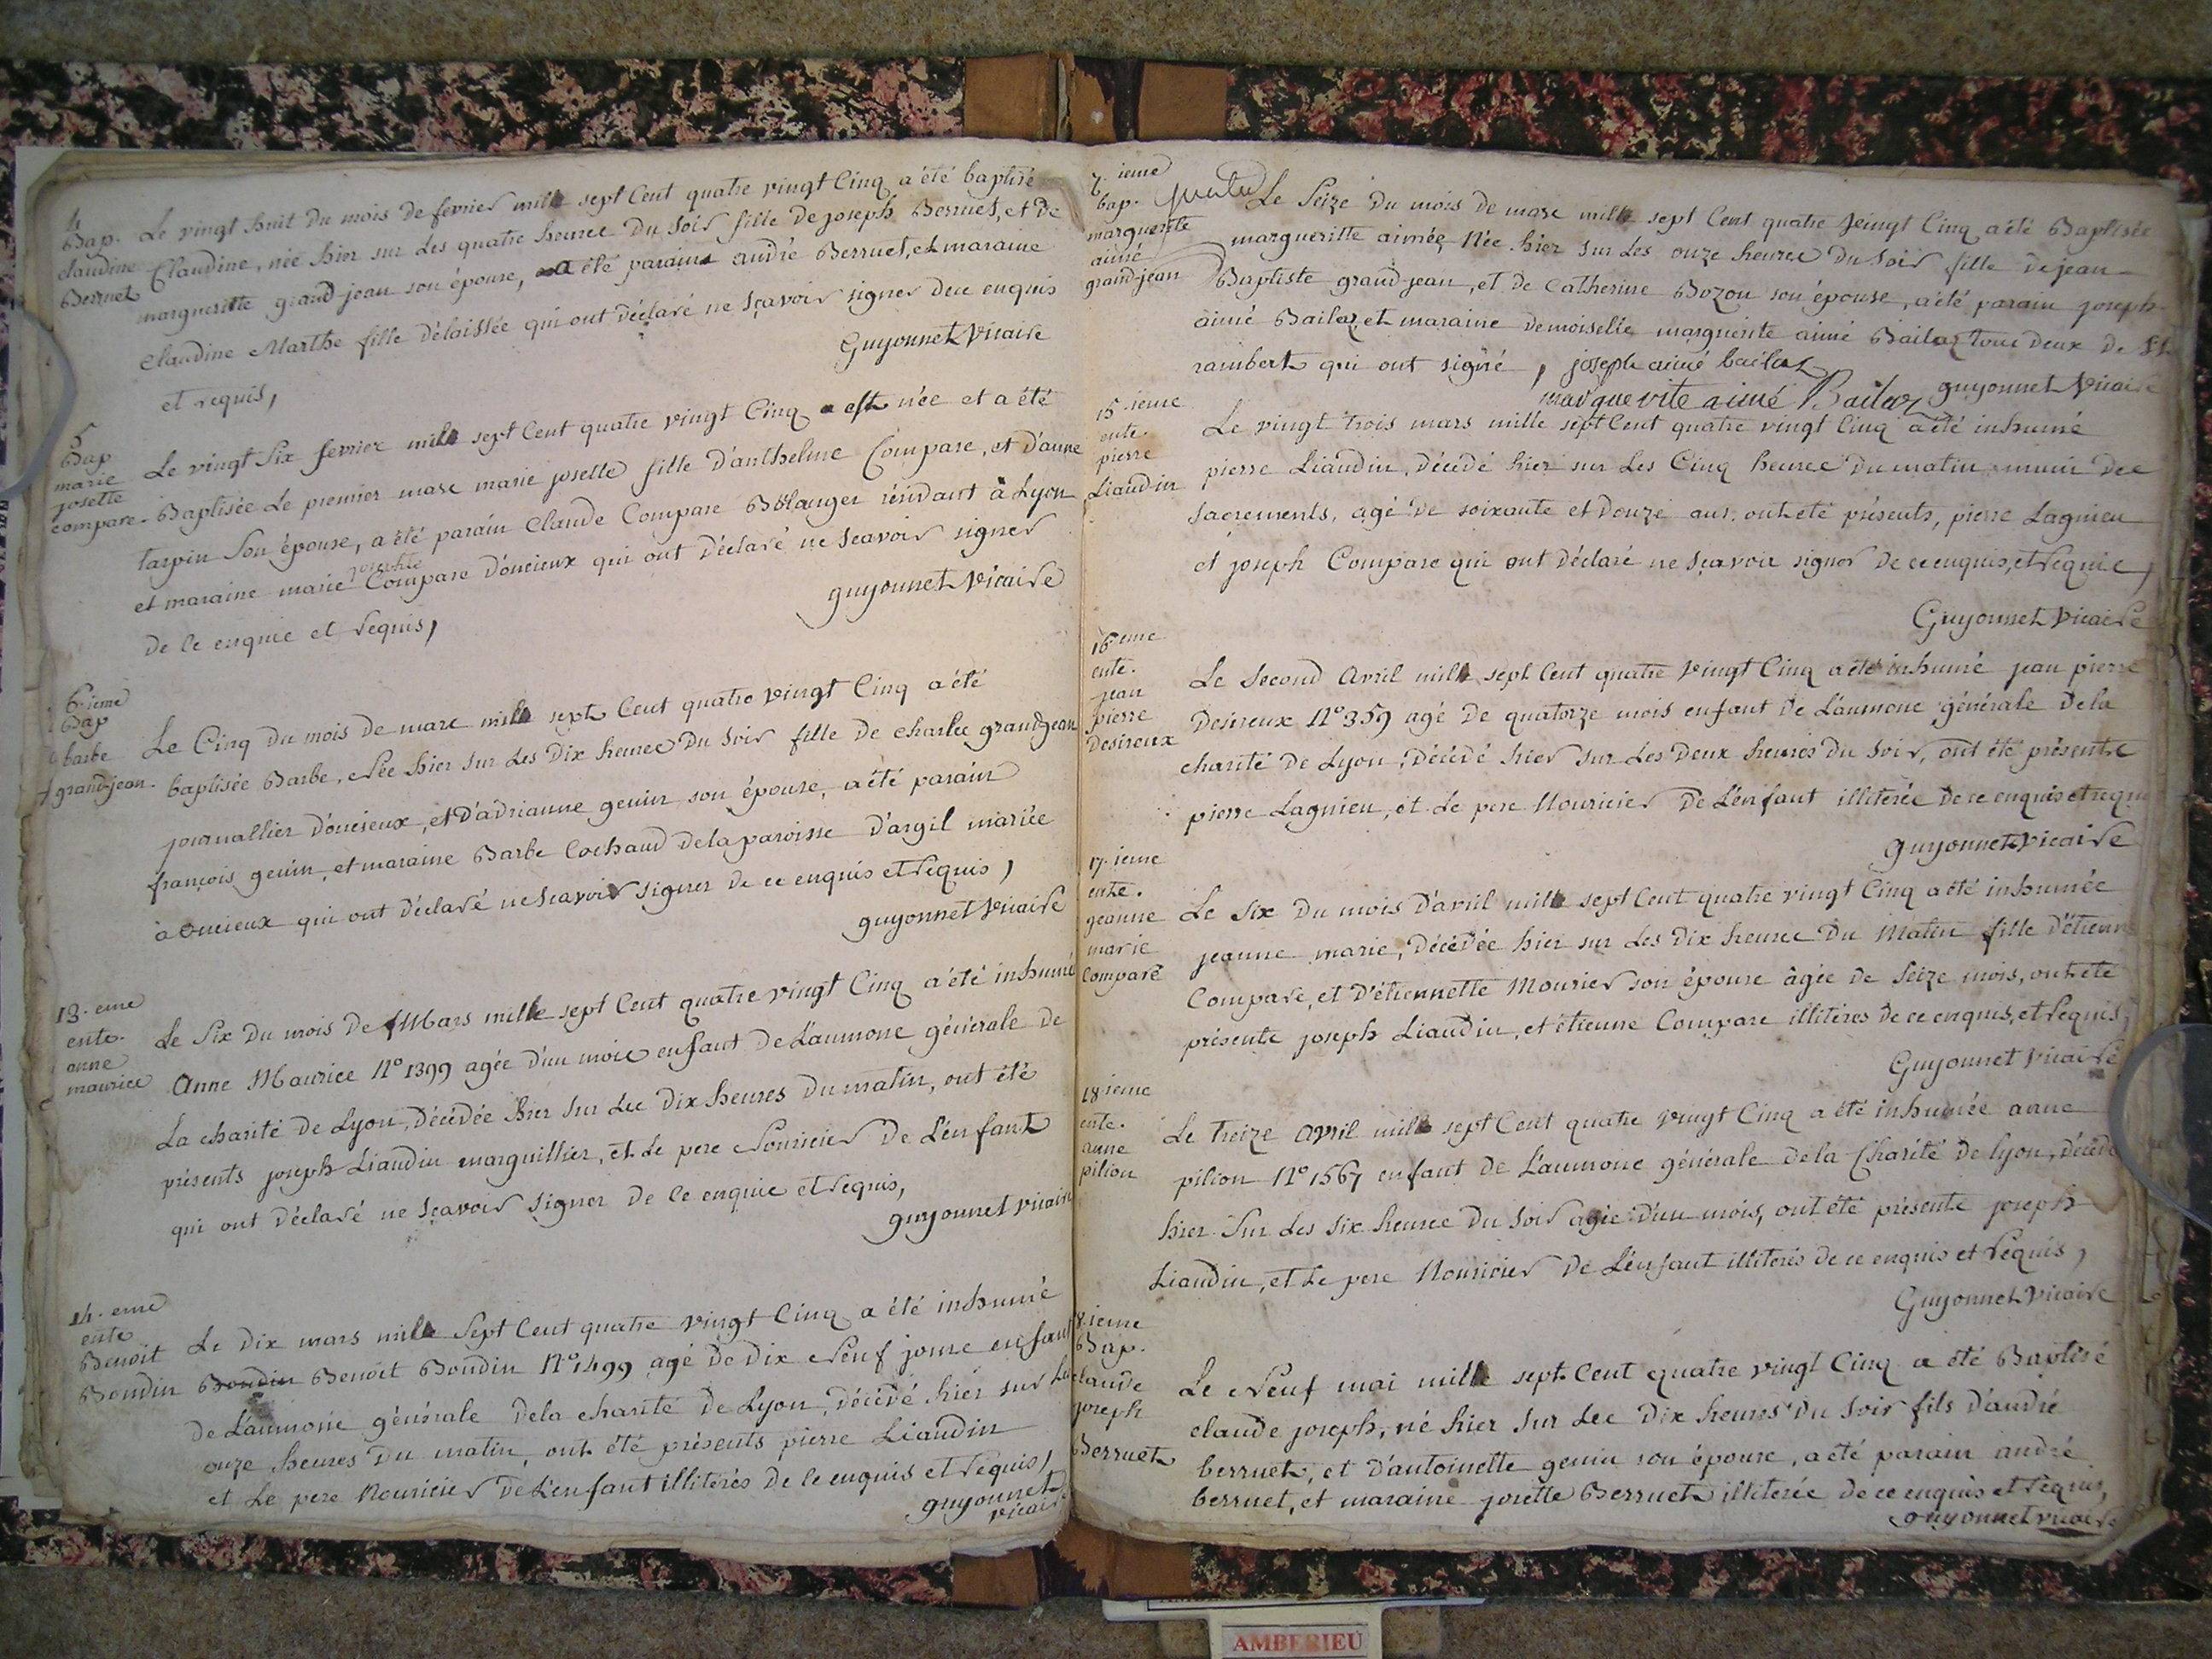 4
Bap.
claudine
Berruet
Le vingt huit du mois de fevrier mille sept cent quatre vingt cinq a été baptisé
Claudine, née hier sur les quatre heures du soir fille de joseph Berruet, et de
marguerite grand-jean son épouse, a été parain andré Berruet, et maraine
claudine Marthe fille délaissée qui ont déclaré ne sçavoir signer de ce enquis
et requis,
Guyonnet vicaire
5
Bap
marie
josette
compare.
Le vingt six fevrier mille sept cent quatre vingt cinq est née et a été
Baptisée le premier mars marie josette fille d'anthelme Compare, et d'anne
tarpin son épouse, a été parain Claude Compare Bôlanger résidant à Lyon
et maraine marie josephte Compare d'oncieux qui ont déclaré ne sçavoir signer
de ce enquis et requis,
guyonnet vicaire
6.ieme
Bap
barbe
grand-jean.
Le Cinq du mois de mars mille sept cent quatre vingt cinq a été
baptisée Barbe, née hier sur les dix heures du soir fille de charles grandjean
journallier d'oncieux, et d'adrianne genin son épouse, a été parain
françois genin, et maraine Barbe Cochaud de la paroisse d'argil mariée
à oncieux qui ont déclaré ne sçavoir signer de ce enquis et requis,
guyonnet vicaire
13.eme
ente.
anne
maurice
Le six du mois de Mars mille sept cent quatre vingt cinq a été inhumé
Anne Maurice N° 1399 agée d'un mois enfant de L'aumone générale de
La charité de Lyon, décédée hier sur les dix heures du matin, ont été
présents joseph Liaudin marguillier, et le pere Nouricier de L'enfant
qui ont déclaré ne sçavoir signer de ce enquis et requis,
guyonnet vicaire
14.eme
ente
Benoit
Boudin
Le dix mars mille sept cent quatre vingt cinq a été inhumé
Boudin Benoit Boudin N° 1499 agé de dix neuf jours enfant
de L'aumone générale de la charité de Lyon, décédé hier sur les
onze heures du matin, ont été présents pierre Liaudin
et le pere Nouricier de L'enfant illiterés de ce enquis et requis,
guyonnet
vicaire
7.ieme
bap.
marguerite
aimé
grand-jean
Le seize du mois de mars mille sept cent quatre veingt cinq a été Baptisée
margueritte aimée née hier sur les onze heures du soir fille de jean
Baptiste grand-jean, et de Catherine Bozon son épouse, a été parain joseph
aimé Bailaz, et maraine demoiselle marguerite aimé Bailaz tous deux de St
rambert qui ont signé, joseph aimé bailaz
marguerite aimé Bailaz guyonnet vicaire
15.ieme
ente.
pierre
Liaudin
Le vingt trois mars mille sept cent quatre vingt cinq a été inhumé
pierre Liaudin, décédé hier sur les Cinq heures du matin muni des
sacrements, agé de soixante et douze ans, ont été présents, pierre Lagnieu
et joseph Compare qui ont déclaré ne sçavoir signer de ce enquis, et requis,
Guyonnet vicaire
16.eme
ente.
jean
pierre
Desireux
Le second avril mille sept cent quatre vingt cinq a été inhumé jean pierre
Desireux N° 359 agé de quatorze mois enfant de L'aumone générale de la
charité de Lyon, décédé hier sur les deux heures du soir, ont été présents
pierre Lagnieu, et le pere Nouricier de L'enfant illiterés de ce enquis et requis
guyonnet vicaire
17.ieme
ente.
geanne
marie
Compare
Le six du mois d'avril mille sept cent quatre vingt cinq a été inhumée
jeanne marie, décédée hier sur les dix heures du matin fille d'étienne
Compare, et d'étiennette Mourier son épouse âgée de seize mois, ont été
présents joseph Liaudin, et étienne Compare illiterés de ce enquis, et requis,
Guyonnet vicaire
18.ieme
ente.
anne
pilion
Le treize avril mille sept cent quatre vingt cinq a été inhumée anne
pilion N° 1567 enfant de L'aumone générale de la charité de Lyon, décédé
hier sur les six heures du soir agée d'un mois, ont été présents joseph
Liaudin, et le pere Nouricier de L'enfant illiterés de ce enquis et requis,
Guyonnet vicaire
8.ieme
Bap.
claude
joseph
Berruet
Le neuf mai mille sept cent quatre vingt cinq a été Baptisé
claude joseph, né hier sur les dix heures du soir fils d'andré
berruet, et d'antoinette genin son épouse, a été parain andré
berruet, et maraine josette Berruet illiterés de ce enquis et requis,
guyonnet vicaire
AMBERIEU